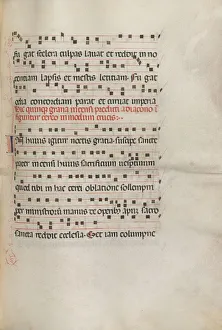 fu gat scelera culpas lauat et reddit in no
centiam lapsis et mestis letitiam. Fu gat
odia concordiam parat et curuat imperia
In huius igitur noctis gratia suscipe sancte
pater in censi huius sacrificium uespertinum
quod tibi in hac cerei oblatione sollempni
per ministrorum manus de operibus apum sacro
sancta reddit ecclesia. Set iam columpne